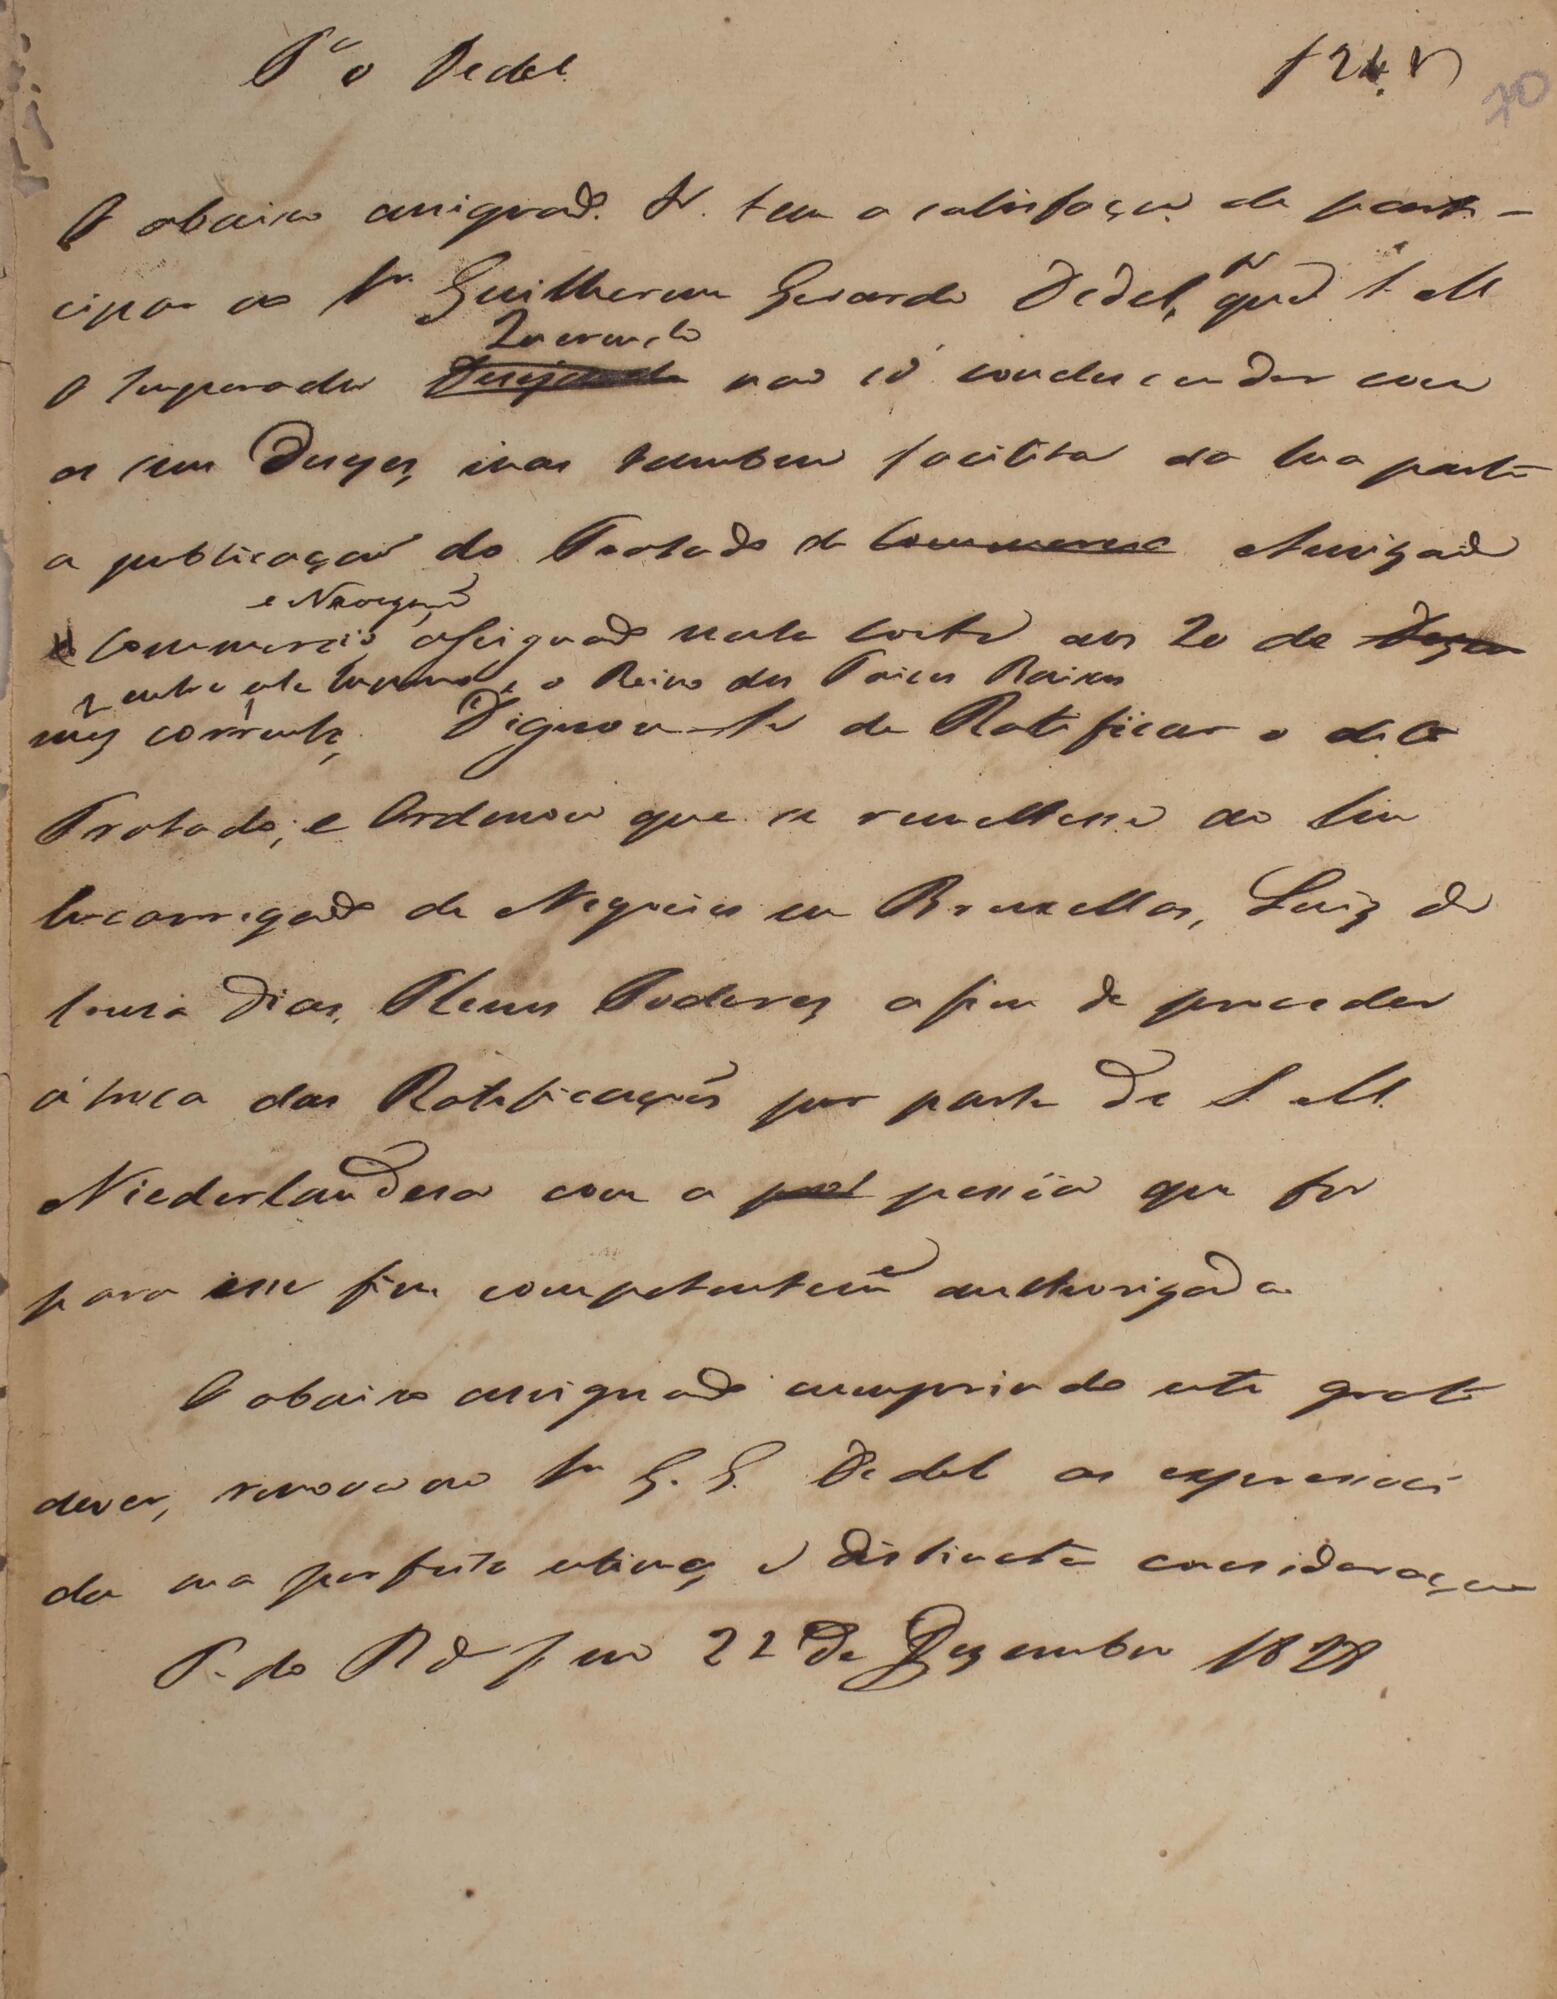 Pª o Dedel
70
O abaixo assignado N. tem a satisfação de parti-
cipar ao Sr. Guilherme Gerardo Dedel, que S. M.
Querendo
O Imperador Desejando não só condescender com
os seus Dezejos, mas tambem facilitar da sua parte
a publicação do Tratado de Commercio Amizade
e Navegação
Commercio, assignado nesta Corte aos 20 de Dezem
entre este Imperio, e o Reino dos Paizes Baixos
mez corrente, Dignou-Se de Ratificar o dito
Tratado, e Ordenou que se remettesse ao Seu
Encarregado de Negocios em Bruxellas, Luiz de
Souza Dias, Plenos Poderes, afim de proceder
á troca das Ratificações por parte de S. M.
Niederlandesa com a pess pessoa que for
para esse fim competentemte authorizada.
O abaixo assignado cumprindo este grato
dever, renova ao Sr. G. G. Dedel as expressões
da sua perfeita estima, e distincta consideração
P. do Rº de Janº em 22 de Dezembro 1828